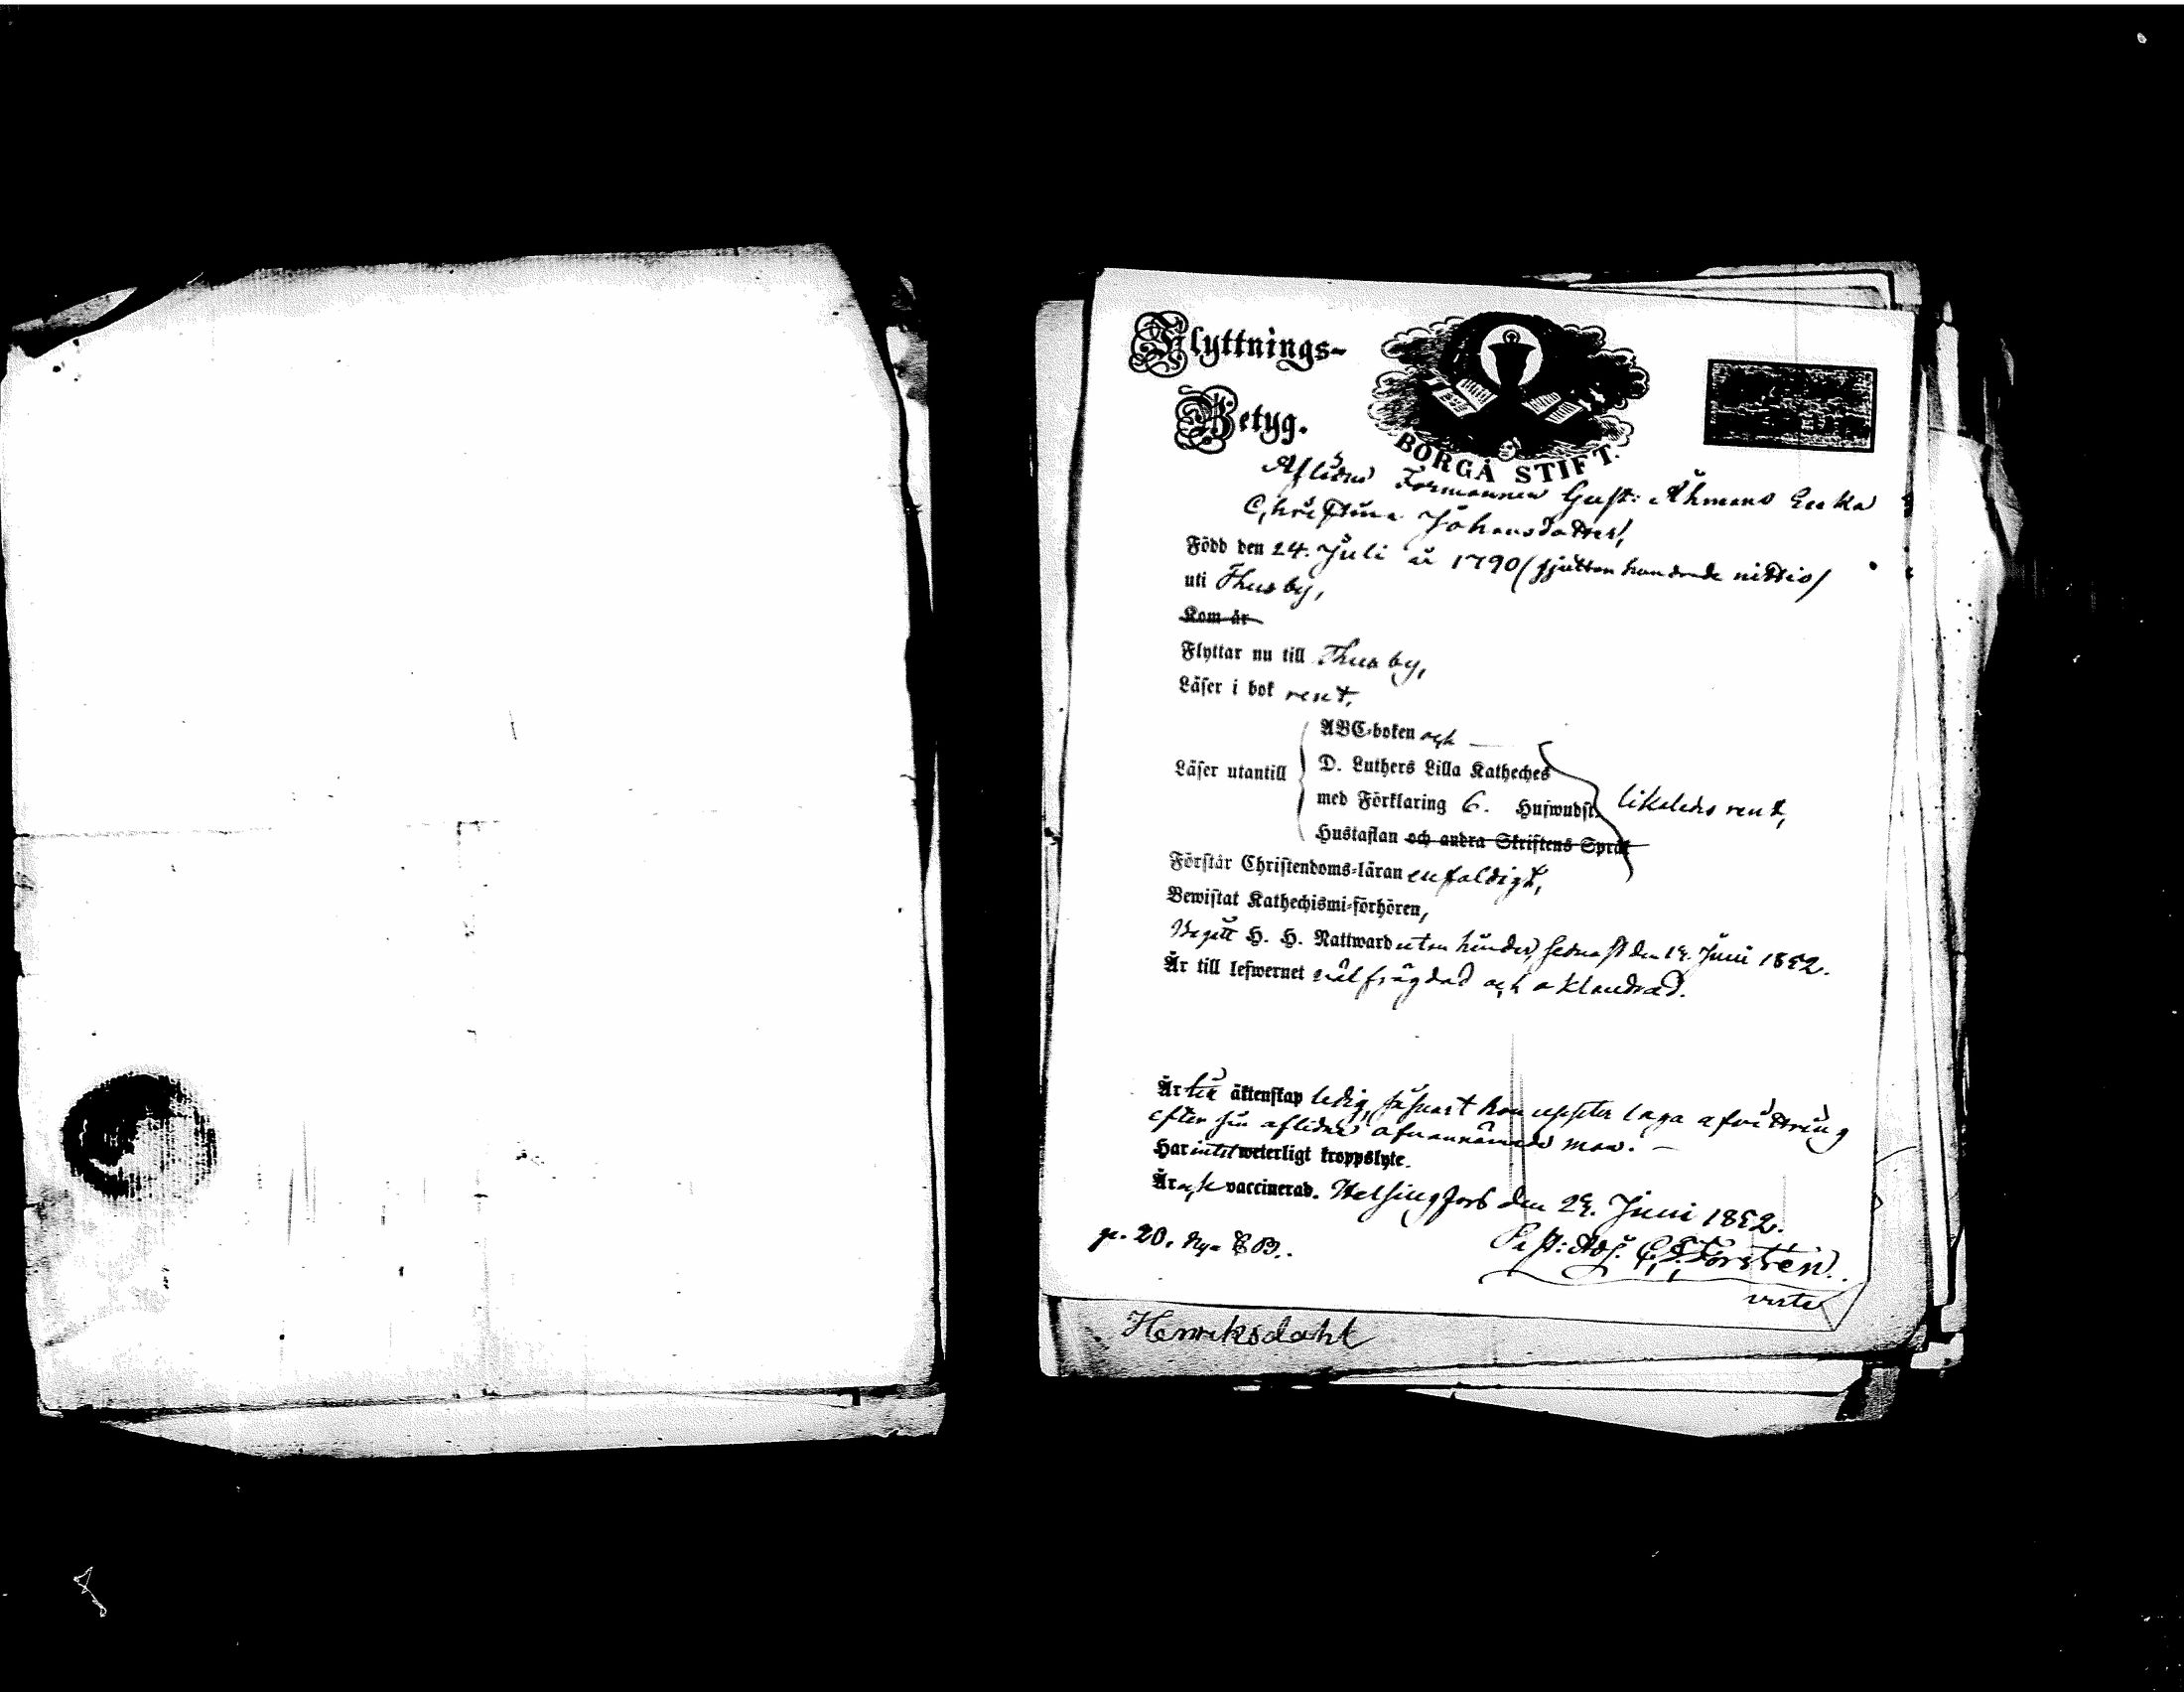 Flyttnings-
Betyg.
BORGÅ STIFT.
Aflidne Formannen Gust: Åhmans Enka
Christina Johansdotter,
Född den 24. Juli år 1790 (sjutton hundrade nittio)
uti Thusby,
Kom år
Flyttar nu till Thusby,
Läser i bok rent,
ABC-boken och
Läser utantill D. Luthers Lilla Katheches
med Förklaring 6. Hufwudst. likaledes rent,
Hustaflan och andra Skriftens Språk
Förstår Christendoms-läran enfaldigt,
Bewistat Kathechismi-förhören,
Begått H. H. Nattward utan hinder, sednast den Juni 1852.
Är till lefwernet välfrägdad och oklandrad.
Är till äktenskap ledig, såsnart hon uppter laga afvittring
efter sin aflidne ofvannämde man. —
Har intet weterligt kroppslyte.
Är och vaccinerad. Helsingfors den Juni 1852.
Past: Adj.
20. Nya C B.
verte
Henriksdahl